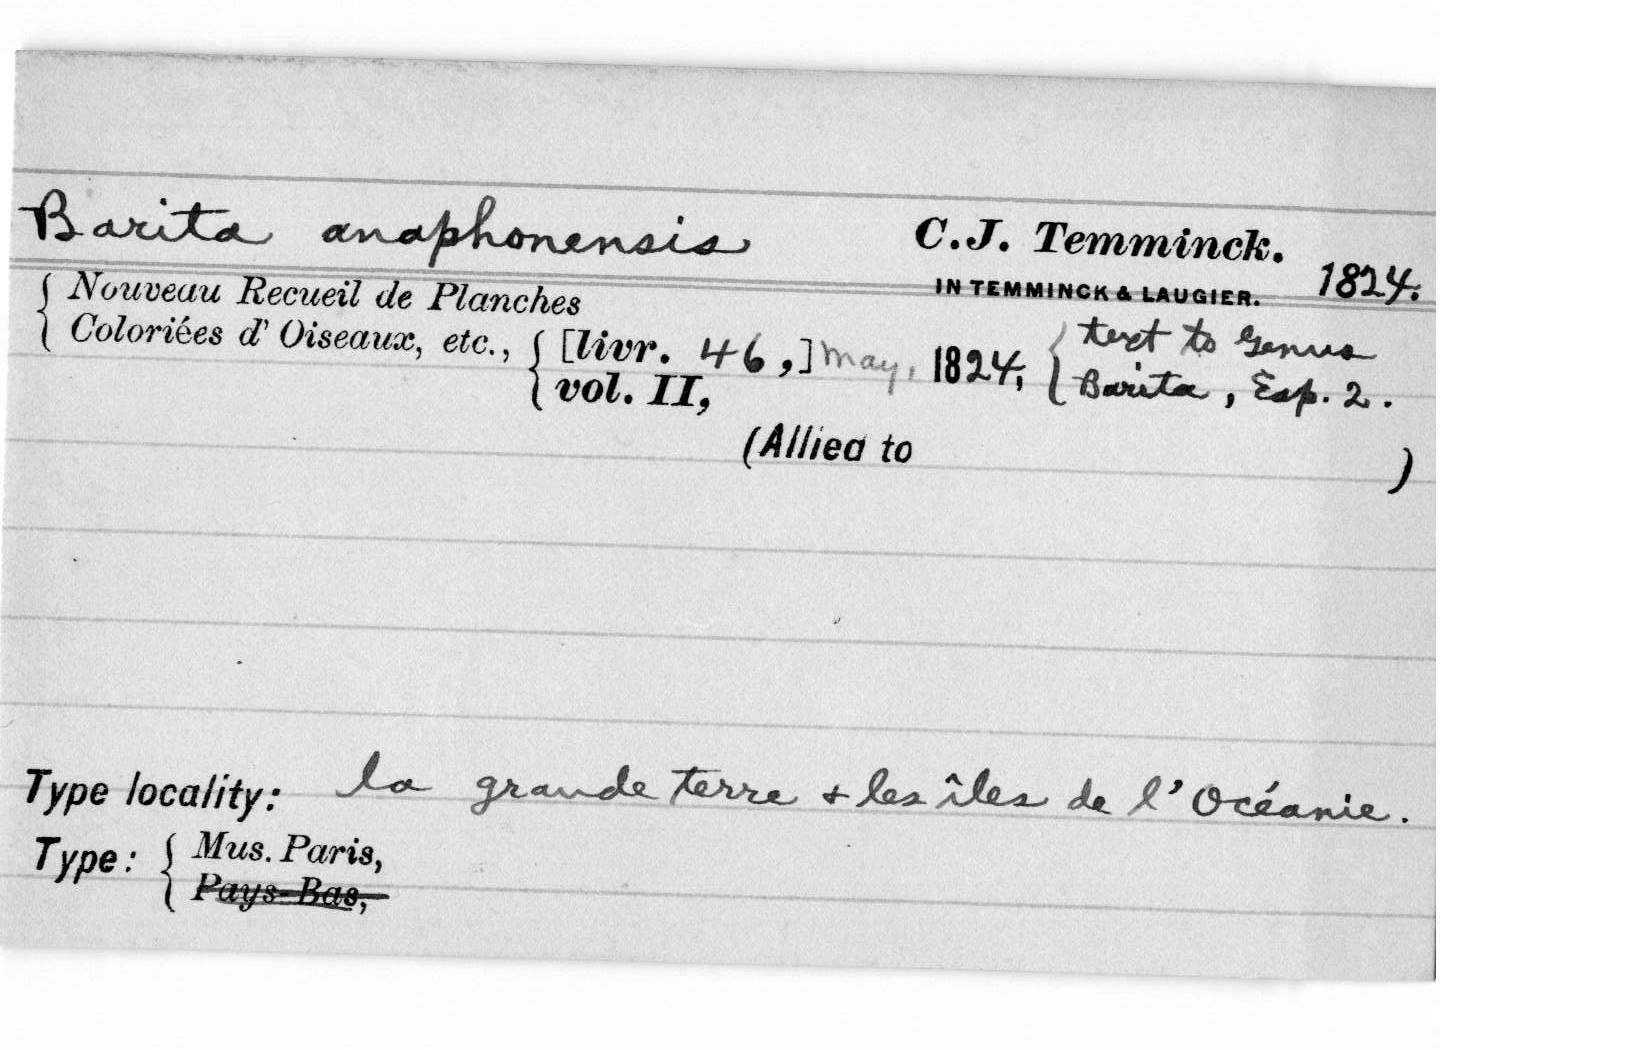 Barita anaphonensis C.J. Temminck.
IN TEMMINCK & LAUGIER. 1824.
{ Nouveau Recueil de Planches
Coloriées d' Oiseaux, etc., { [livr. 46,] May, 1824, { text to Genus
vol. II, Barita, Esp. 2.
(Allied to )
Type locality: la grande terre & les îles de l'Océanie.
Type: { Mus. Paris,
Pays-Bas,